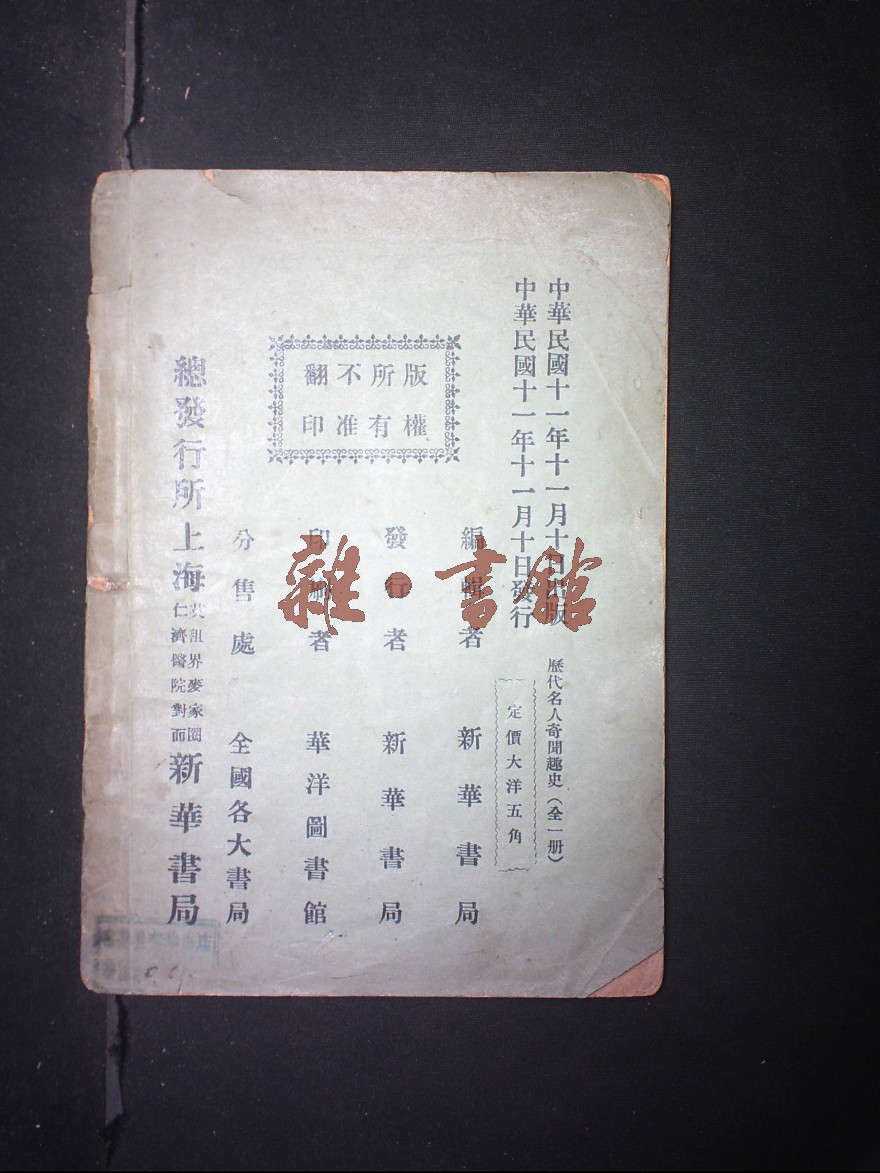 中華民國十一年十一月十日出版
中華民國十一年十一月十日發行
歷代名人奇聞趣史（全一册）
定價大洋五角
版權
所有
不准
翻印
編輯者 新華書局
發行者 新華書局
印刷者 華洋圖書館
分售處 全國各大書局
總發行所上海
英租界麥家圈
仁濟醫院對面
新華書局
雜·書館